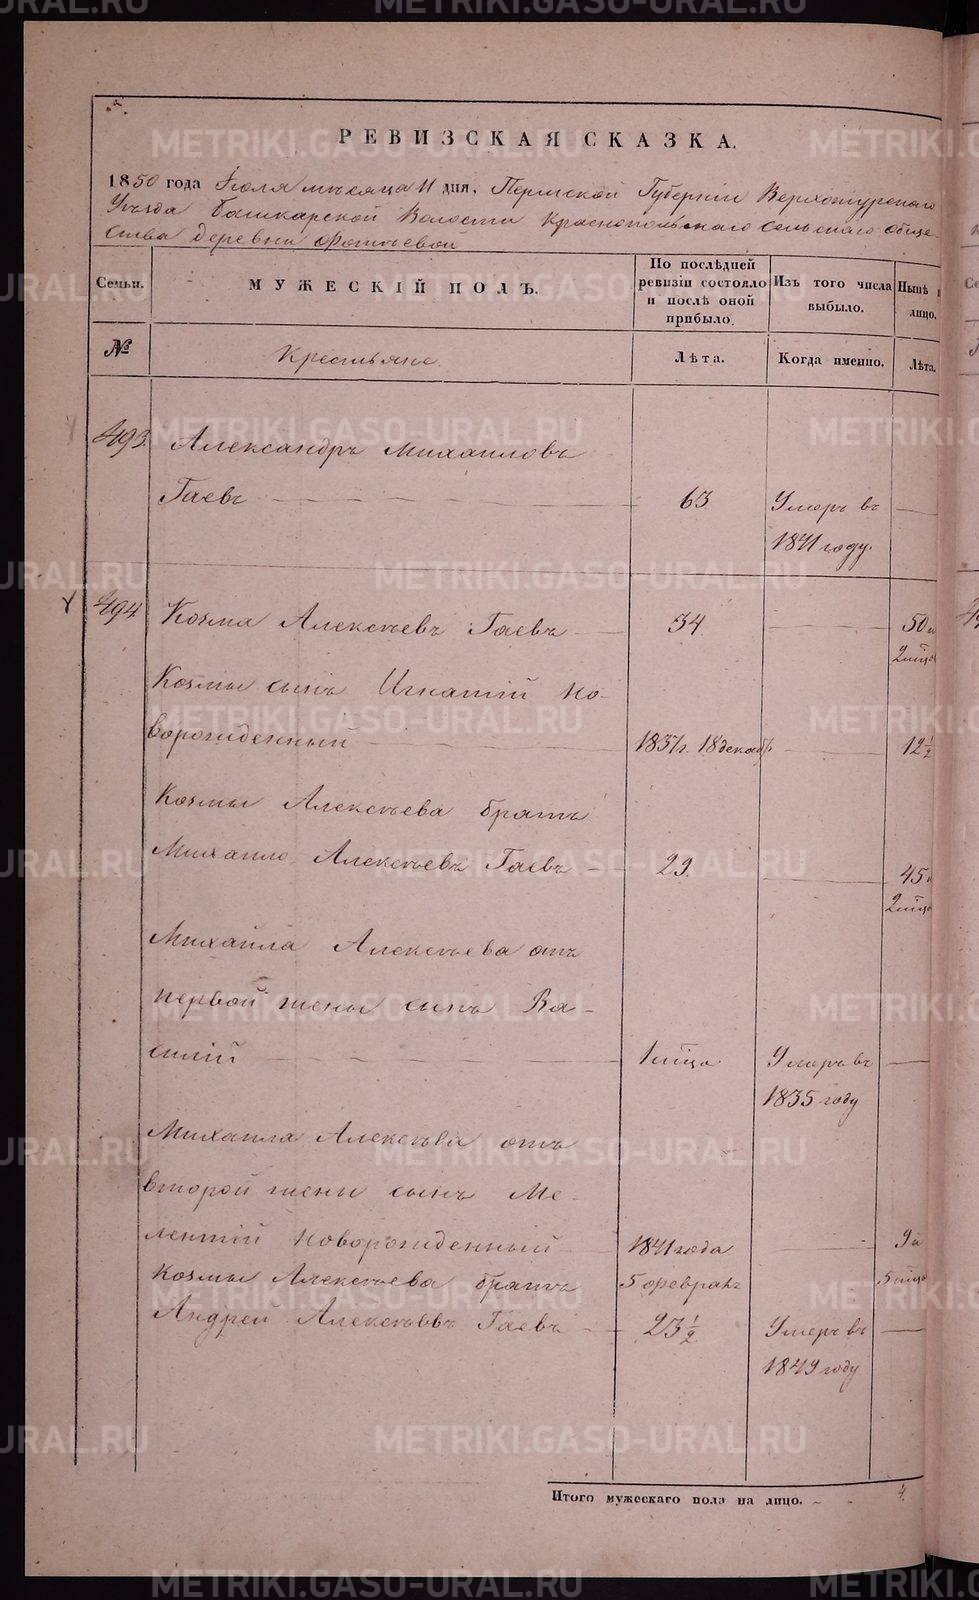 РЕВИЗСКАЯ СКАЗКА.
1850 года Июля месяца 11 дня, Пермской Губернiи Верхотурскаго
Уѣзда Башкарской Волости Краснопольскаго сельскаго обще-
ства деревни Фотѣевой
Семьи.
МУЖЕСКIЙ ПОЛЪ.
По послѣдней ревизiи состояло и послѣ оной прибыло.
Изъ того числа выбыло.
Нынѣ
лицо.
№
Крестьяне.
Лѣта.
Когда именно.
Лѣта.
493 Александръ Михаиловъ
Гаевъ 63 Умеръ въ
1841 году.
494 Козма Алексѣевъ Гаевъ 34 50 и
2 мѣца
Козмы сынъ Игнатiй но-
ворожденный 1837 г. 18 декаб. 12 ½
Козмы Алексѣева братъ
Михаило Алексѣевъ Гаевъ 29. 45 и
2 мѣца
Михаила Алексѣева отъ
первой жены сынъ Ва-
силiй 1 мѣца Умеръ въ
1835 году
Михаила Алексѣева отъ
второй жены сынъ Ме-
лентiй новорожденный 1841 года 9 и
Козмы Алексѣева братъ 5 февраля 5 мѣца
Андрей Алексѣевъ Гаевъ 23 ½ Умеръ въ
1849 году
Итого мужескаго пола на лицо. 4.
METRIKI.GASO-URAL.RU